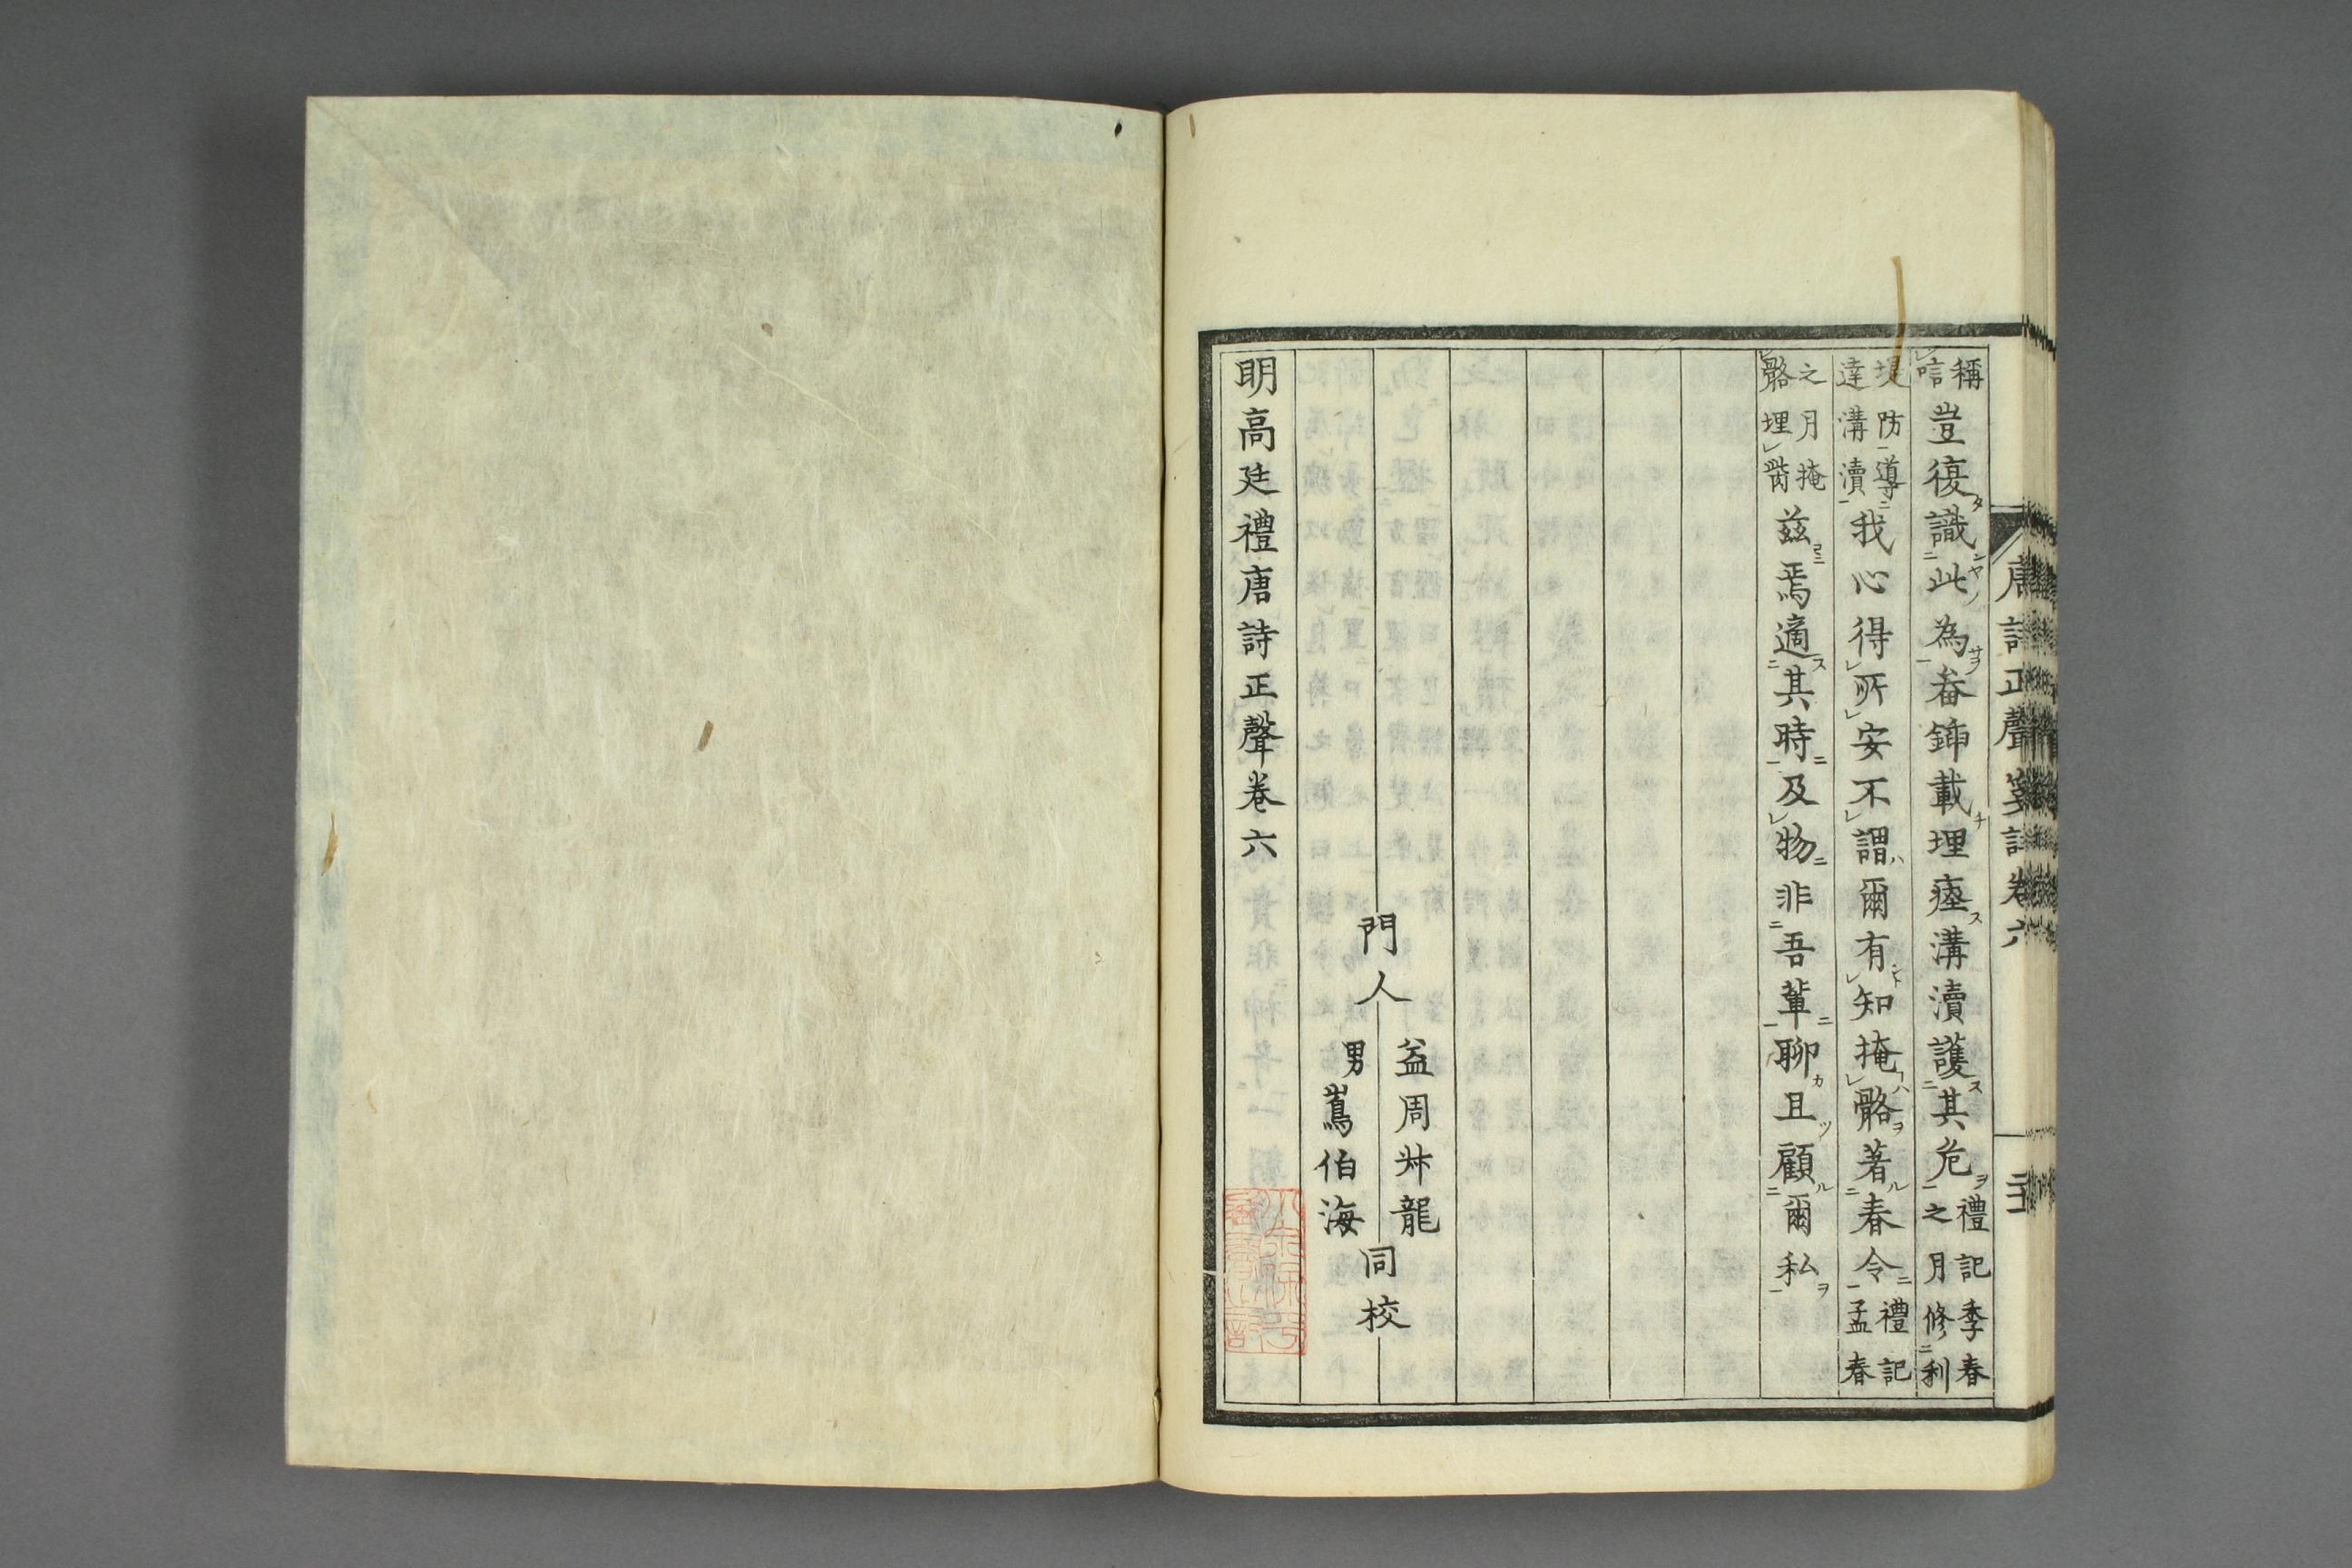 唐詩正聲箋註卷六
稱唁豈復識此為畚鍤載埋瘞溝瀆護其危禮記季春之月修利
堤防導達溝瀆我心得所安不謂爾有知掩骼著春令禮記孟春
之月掩骼埋胔茲焉適其時及物非吾輩聊且顧爾私
門人 益周舛龍
男蔦伯海
同校
明高廷禮唐詩正聲卷六